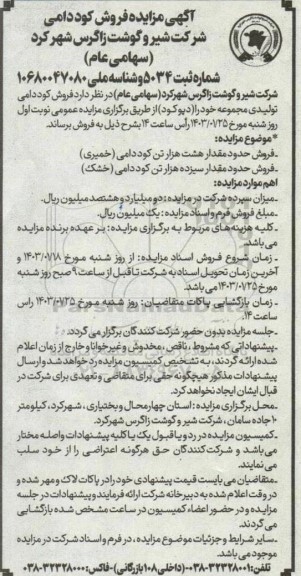 آگهی مزایده فروش کود دامی
شرکت شیر و گوشت زاگرس شهر کرد
(سهامی عام)
شماره ثبت ۵۰۳۴ و شناسه ملی ۱۰۶۸۰۰۴۷۰۸۰
شرکت شیر و گوشت زاگرس شهرکرد (سهامی عام) در نظر دارد فروش کود دامی
تولیدی مجموعه خود را (دپو کود) از طریق برگزاری مزایده عمومی نوبت اول
روز شنبه مورخ ۱۴۰۳/۰۱/۲۵ رأس ساعت ۱۴ بشرح ذیل به فروش برساند.
*موضوع مزایده:
ـ فروش حدود مقدار هشت هزار تن کود دامی (خمیری)
ـ فروش حدود مقدار سیزده هزار تن کود دامی (خشک)
اهم موارد مزایده:
ـ میزان سپرده شرکت در مزایده: دو میلیارد و هشتصد میلیون ریال.
ـ مبلغ فروش فرم و اسناد مزایده: یک میلیون ریال.
ـ کلیه هزینه های مربوط به برگزاری مزایده: بر عهده برنده مزایده
می باشد.
ـ زمان شروع فروش اسناد مزایده: از روز شنبه مورخ ۱۴۰۳/۰۱/۱۸ و
آخرین زمان تحویل اسناد به شرکت تا قبل از ساعت ۹ صبح روز شنبه
مورخ ۱۴۰۳/۰۱/۲۵ می باشد.
ـ زمان بازگشایی پاکات متقاضیان: روز شنبه مورخ ۱۴۰۳/۱/۲۵ راس
ساعت ۱۴.
ـ جلسه مزایده بدون حضور شرکت کنندگان برگزار می گردد.
ـ پیشنهاداتی که مشروط، ناقص، مخدوش و غیر خوانا و خارج از زمان اعلام
شده ارائه گردند، به تشخیص کمیسیون مزایده رد خواهد شد و ارسال
پیشنهادات مذکور هیچگونه حقی برای متقاضی و تعهدی برای شرکت در
قبال ایشان ایجاد نخواهد کرد.
ـ محل برگزاری مزایده: استان چهارمحال و بختیاری، شهرکرد، کیلومتر
۱۰ جاده سامان، شرکت شیر و گوشت زاگرس شهرکرد.
ـ کمیسیون مزایده در رد و یا قبول یک یا کلیه پیشنهادات واصله مختار
می باشد و شرکت کنندگان حق هرگونه اعتراضی را از خود سلب
می نمایند.
ـ متقاضیان می بایست قیمت پیشنهادی خود را در پاکات لاک و مهر شده و
در وقت اعلام شده به دبیرخانه شرکت ارائه فرمایند و پیشنهادات در جلسه
مزایده و در حضور اعضاء کمیسیون در ساعت مشخص شده بازگشایی
می گردند.
ـ سایر شرایط و جزئیات موضوع مزایده، در فرم و اسناد شرکت در مزایده
موجود می باشد.
تلفن: ۰۳۸-۳۲۳۲۸۰۰۱ - (داخلی ۱۰۸ بازرگانی) - فاکس: ۰۳۸-۳۲۳۲۸۰۰۰